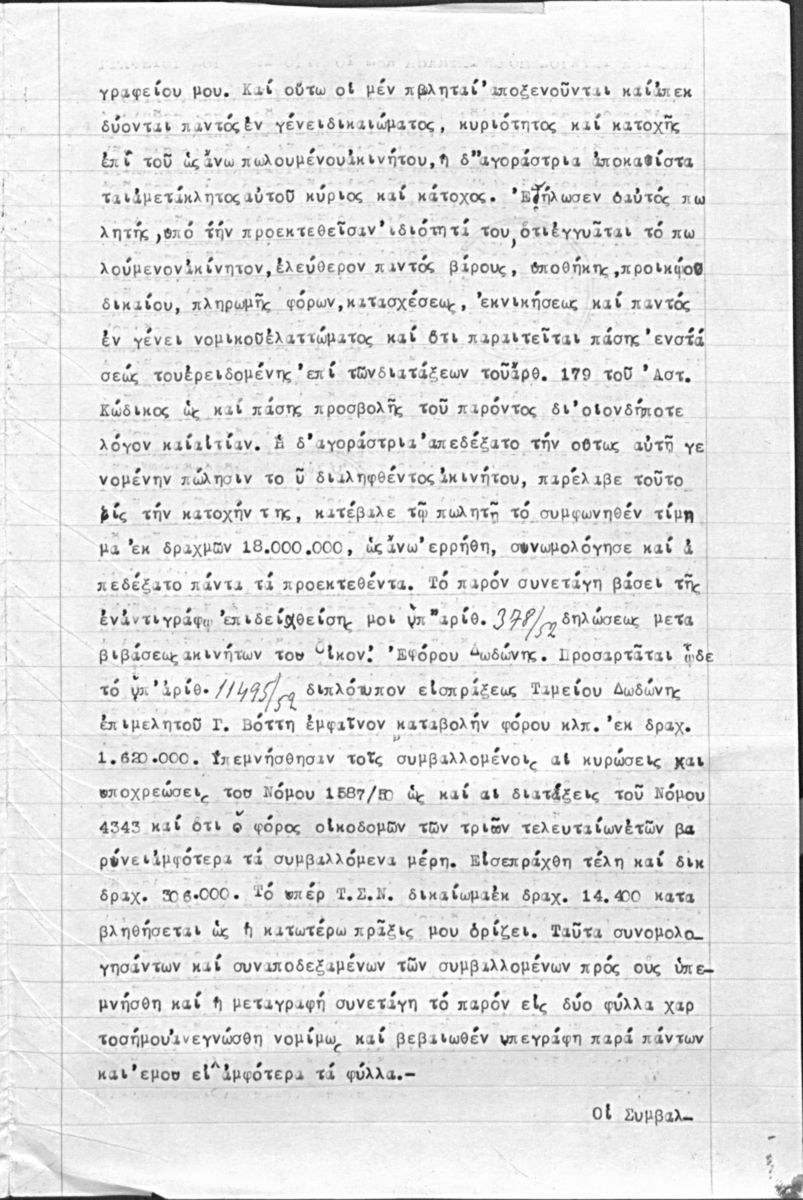 γραφείου μου. Καί οὕτω οἱ μέν πωληταί ἀποξενοῦνται καί ἀπεκ
δύονται παντός ἐν γένει δικαιώματος, κυριότητος καί κατοχῆς
ἐπί τοῦ ὡς ἄνω πωλουμένου ἀκινήτου, ἡ δ' ἀγοράστρια ἀποκαθίστα
ται ἀμετάκλητος αὐτοῦ κύριος καί κάτοχος. Ἐδήλωσεν ὁ αὐτός πω
λητής, ὑπό τήν προεκτεθεῖσαν ἰδιότητά του, ὅτι ἐγγυᾶται τό πω
λούμενον ἀκίνητον, ἐλεύθερον παντός βάρους, ὑποθήκης, προικῴου
δικαίου, πληρωμῆς φόρων, κατασχέσεως, ἐκνικήσεως καί παντός
ἐν γένει νομικοῦ ἐλαττώματος καί ὅτι παραιτεῖται πάσης ἐνστά
σεώς του ἐρειδομένης ἐπί τῶν διατάξεων τοῦ ἄρθ. 179 τοῦ Ἀστ.
Κώδικος ὡς καί πάσης προσβολῆς τοῦ παρόντος δι' οἱονδήποτε
λόγον καί αἰτίαν. Ἡ δ' ἀγοράστρια ἀπεδέξατο τήν οὕτως αὐτῇ γε
νομένην πώλησιν το ῦ διαληφθέντος ἀκινήτου, παρέλαβε τοῦτο
εἰς τήν κατοχήν της, κατέβαλε τῷ πωλητῇ τό συμφωνηθέν τίμη
μα ἐκ δραχμῶν 18.000.000, ὡς ἄνω ἐρρήθη, συνωμολόγησε καί ἀ
πεδέξατο πάντα τά προεκτεθέντα. Τό παρόν συνετάγη βάσει τῆς
ἐν ἀντιγράφῳ ἐπιδειχθείσης μοι ὑπ' ἀρίθ. 378/52 δηλώσεως μετα
βιβάσεως ἀκινήτων του Οἰκον. Ἐφόρου Δωδώνης. Προσαρτᾶται ὧδε
τό ὑπ' ἀρίθ. 11495/52 διπλότυπον εἰσπράξεως Ταμείου Δωδώνης
ἐπιμελητοῦ Γ. Βόττη ἐμφαῖνον καταβολήν φόρου κλπ. ἐκ δραχ.
1.620.000. Ὑπεμνήσθησαν τοῖς συμβαλλομένοις αἱ κυρώσεις και
ὑποχρεώσεις του Νόμου 1587/50 ὡς καί αἱ διατάξεις τοῦ Νόμου
4343 καί ὅτι ὁ φόρος οἰκοδομῶν τῶν τριῶν τελευταίων ἐτῶν βα
ρύνει ἀμφότερα τά συμβαλλόμενα μέρη. Εἰσεπράχθη τέλη καί δικ
δραχ. 306.000. Τό ὑπέρ Τ.Σ.Ν. δικαίωμα ἐκ δραχ. 14.400 κατα
βληθήσεται ὡς ἡ κατωτέρω πρᾶξις μου ὁρίζει. Ταῦτα συνομολο-
γησάντων καί συναποδεξαμένων τῶν συμβαλλομένων πρός ους ὑπε-
μνήσθη καί ἡ μεταγραφή συνετάγη τό παρόν εἰς δύο φύλλα χαρ
τοσήμου ἀνεγνώσθη νομίμως καί βεβαιωθέν ὑπεγράφη παρά πάντων
και' εμου εἰ ἀμφότερα τά φύλλα.-
Οἱ Συμβαλ-